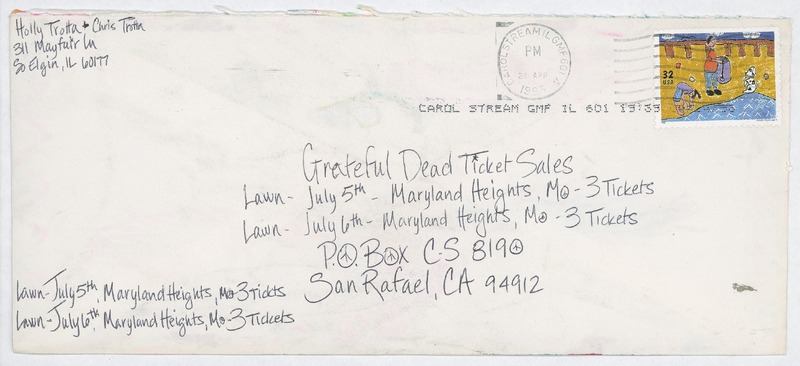 Holly Trotta & Chris Trotta
311 Mayfair Ln
So Elgin, IL 60177
CAROL STREAM IL GMF 601
PM
21 APR
1995
32
USA
CAROL STREAM GMF IL 601 19:35
Grateful Dead Ticket Sales
Lawn- July 5th - Maryland Heights, Mo - 3 Tickets
Lawn- July 6th - Maryland Heights, Mo - 3 Tickets
P.O. Box C-S 8190
San Rafael, CA 94912
Lawn-July 5th, Maryland Heights, Mo-3 Tickts
Lawn-July 6th, Maryland Heights, Mo-3 Tickets